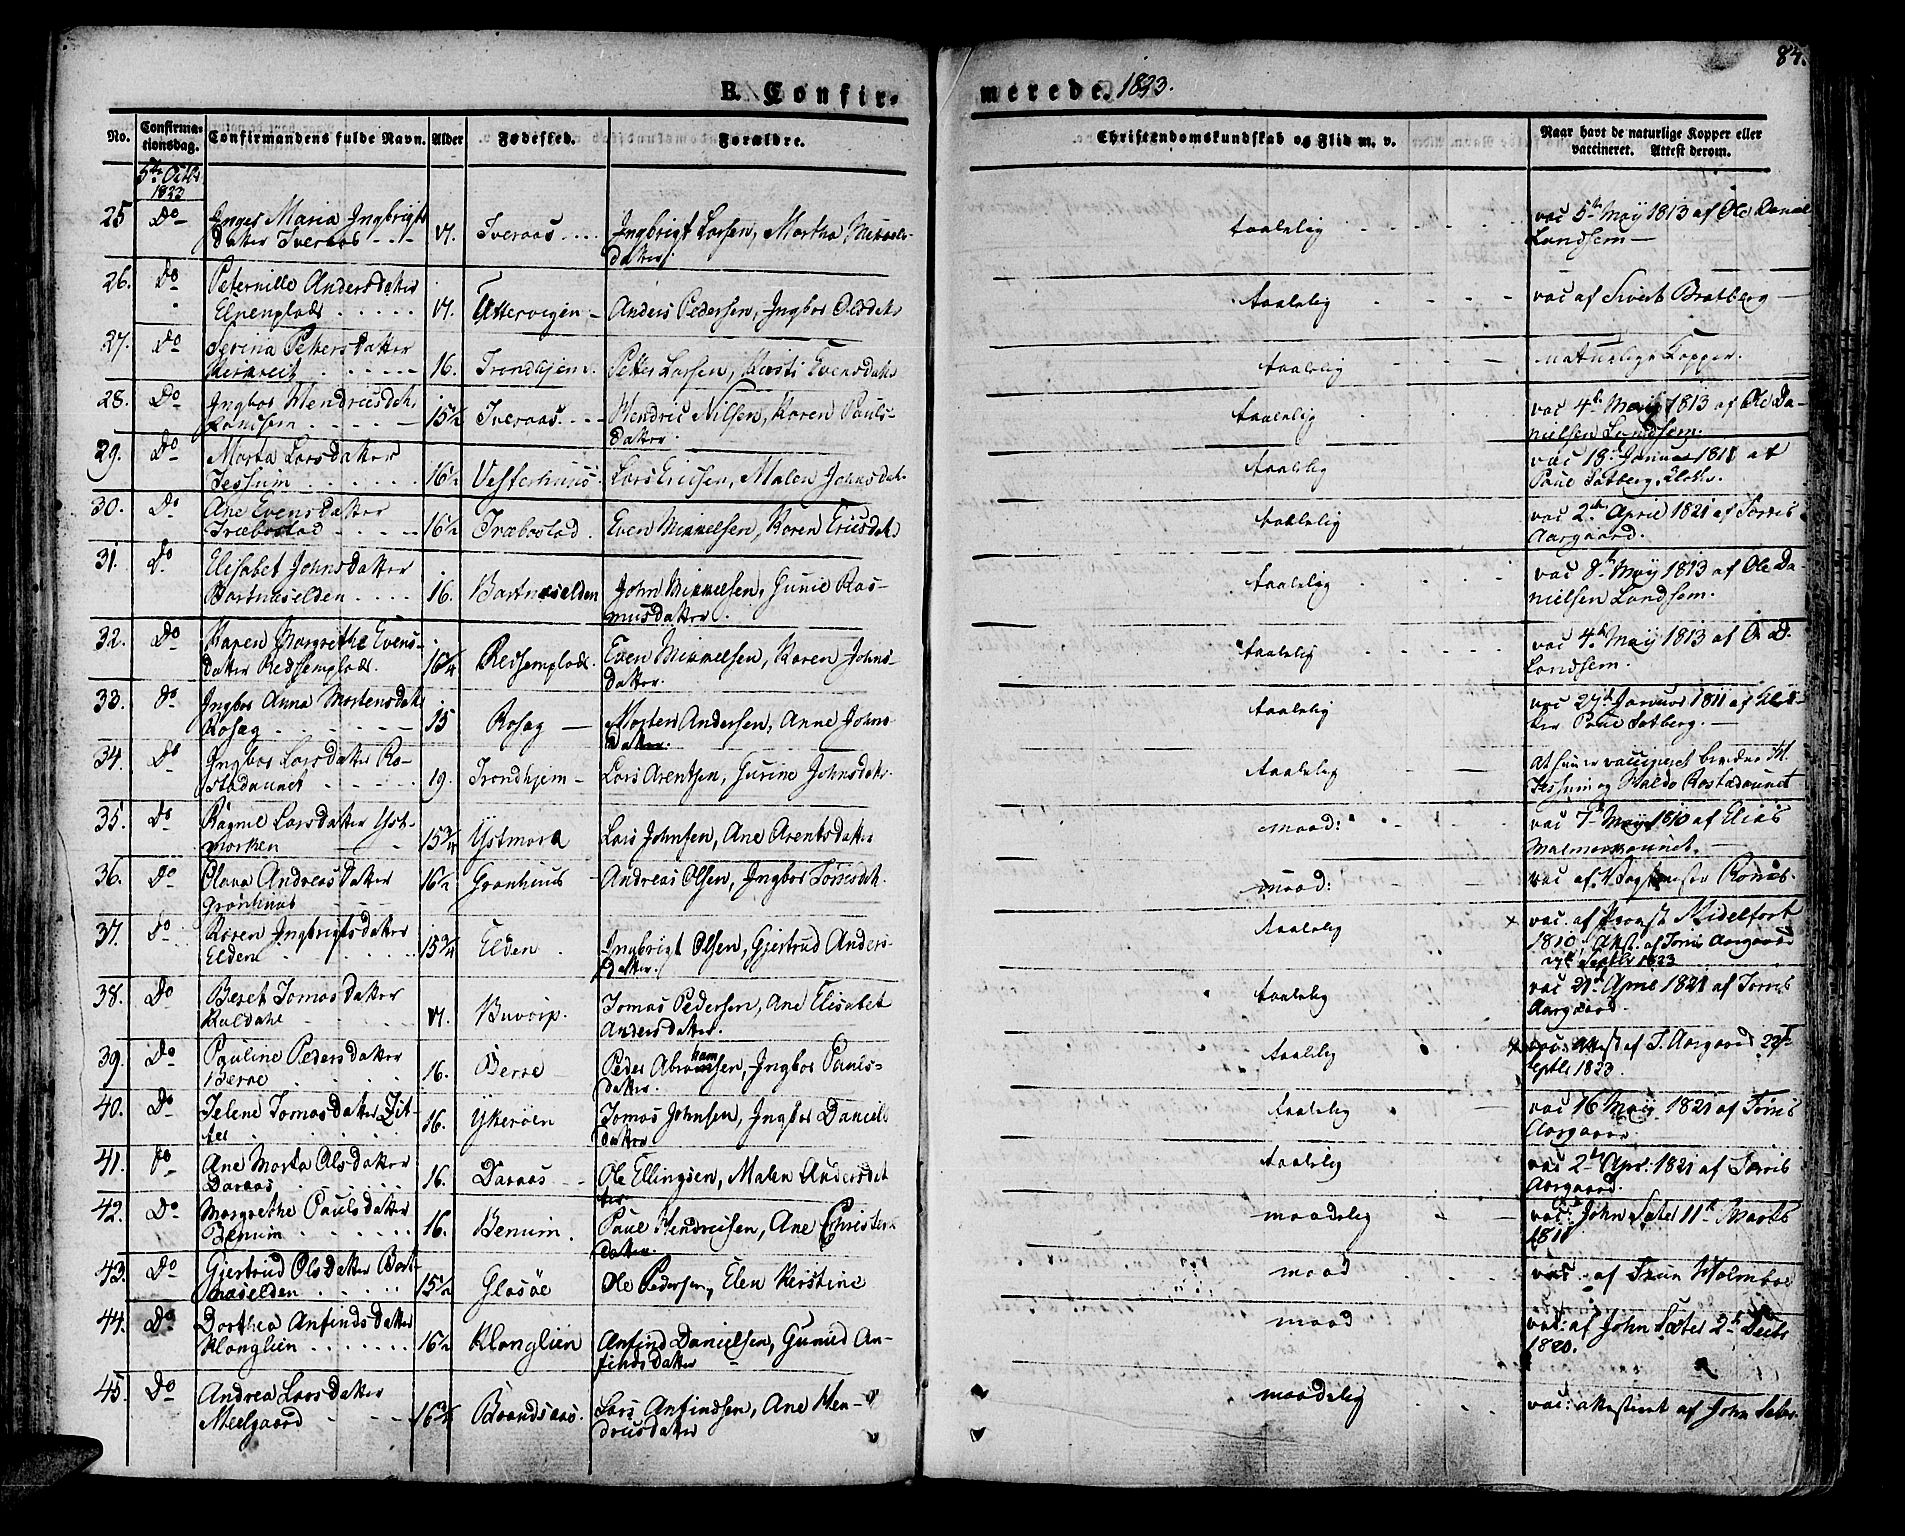 84.
B. Confirmerede. 1823.
No. Confirmationsdag. Confirmandens fulde Navn. Alder Fødested. Forældre. Christendomskundskab og Flid m. v. Naar havt de naturlige Kopper eller vaccineret. Attest derom.
5te Octbr 1823
25 Do Inger Maria Ingbrigts 17. Iveraas Ingbrigt Larsen, Martha Mikkels- taalelig vac 5te Maÿ 1813 af Ole Daniel
datter Iveraas datter. Landsem
26. Do Peternille Andersdatter
Elnenplads 17. Uttervigen Anders Pedersen, Ingbor Olsdatr taalelig vac af Sivert Bratberg
27. Do Serina Pettersdatter
16. Trondhjem. Petter Larsen, Kirsti Evensdatr taalelig naturlige Kopper.
28. Do Ingbor Hendricsdatr
Landsem 15½ Iveraas Hendric Nilsen, Karen Pauls- taalelig vac 4de Maÿ 1813 af Ole Da-
datter. nielsen Landsem.
29. Do Marta Larsdatter
Jessum 16½ Vesterhuus Lars Ericsen, Malen Johnsdat. taalelig vac 18. Januar 1811 af
Paul Satberg, Klokr.
30. Do Ane Evensdatter
Træbostad 16½ Træbostad. Even Mikkelsen, Karen Ericsdatr taalelig vac 2den April 1821 af Torris
Aargaard.
31. Do Elisabet Johnsdatter
Bartnæselden 16. Bartnæselden John Mikkelsen, Gunild Ras- taalelig vac 8de Maÿ 1813 af Ole Da-
musdatter. nielsen Landsem.
32. Do Karen Margrethe Evens-
datter Redsemplads. 16¾ Redsemplads. Even Mikkelsen, Karen Johns- taalelig vac 4de Maÿ 1813 af O. D.
datter. Landsem.
33. Do Ingbor Anna Mortensdatr
Rosag 15 Rosag Morten Andersen, Anne Johns- taalelig vac 27de Januar 1811 af Klok-
datter. ker Paul Satberg.
34. Do Ingbor Larsdatter Ro-
stadaunet 19. Trondhjem Lars Arentsen, Gurine Johnsdatr. taalelig At hun er vaccineret bevidne M.
Jessum og Waldo Rostadaunet
35. Do Ragnil Larsdatter Yst-
morken 15¾ Ystmark Lars Johnsen, Ane Arentsdatter maad: vac 7de Maÿ 1810 af Elias
Malmoaunet.
36. Do Olava Andreasdatter
Grønhuus 16½ Grønhuus Andreas Olsen, Ingbor Torrisdtr. maad: vac af Rønnes.
37. Do Karen Ingbrigtsdatter
Elden 15¾ Elden. Ingbrigt Olsen, Gjertrud Anders- taalelig x vac. af Provst Midelfort
datter. 1810. Attst. af Torris Aargaard
Septbr 1823
38. Do Beret Tomasdatter
Kaldahl 17. Buvarp. Tomas Pedersen, Ane Elisabet taalelig vac 21de April 1821 af Torris
Andersdatter. Aargaard.
39. Do Pauline Pedersdatter
Berre 16. Berre Peder Abrahamsen, Ingbor Pauls- taalelig x vac: Attest af T. Aargaard 22de
datter. Septbr 1823.
40. Do Jelene Tomasdatter Tit-
tel 16. Ykerøen Tomas Johnsen, Ingbor Daniels taalelig vac 16 Maÿ 1821 af Torris
datter Aargaard.
41. Do Ane Marta Olsdatter
Daraas 16. Daraas Ole Ellingsen, Malen Andersdat taalelig vac 2den Apr: 1821 af Torris
ter Aargaard.
42. Do Margrethe Paulsdatter
Benum 16. Benum. Paul Hendricsen, Ane Christens maadelig vac: John Sæter 11te Marts
datter 1811
43. Do Gjertrud Olsdatter Bart-
næselden 15½ Glasøe Ole Pedersen, Elen Kerstine maad vac: af Frun Holmboe
44. Do Dorthea Anfindsdatter
Klonglien 16½ Klonglien Anfind Danielsen, Gunild An- maad vac: af John Sæter 2den Decbr
findsdatter 1820.
45. Do Andrea Larsdatter
Meelgaard 16¾ Brandsaas. Lars Anfindsen, Ane Hen- maadelig vac: attesteret af John Sæter
dricsdatter